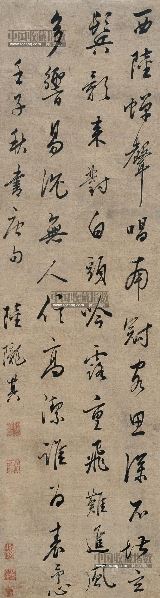 西陸蟬聲唱南冠客思深不堪玄
鬢影來對白頭吟露重飛難進風
多響易沉無人信高潔誰為表予心
壬子秋書唐句
陸隴其